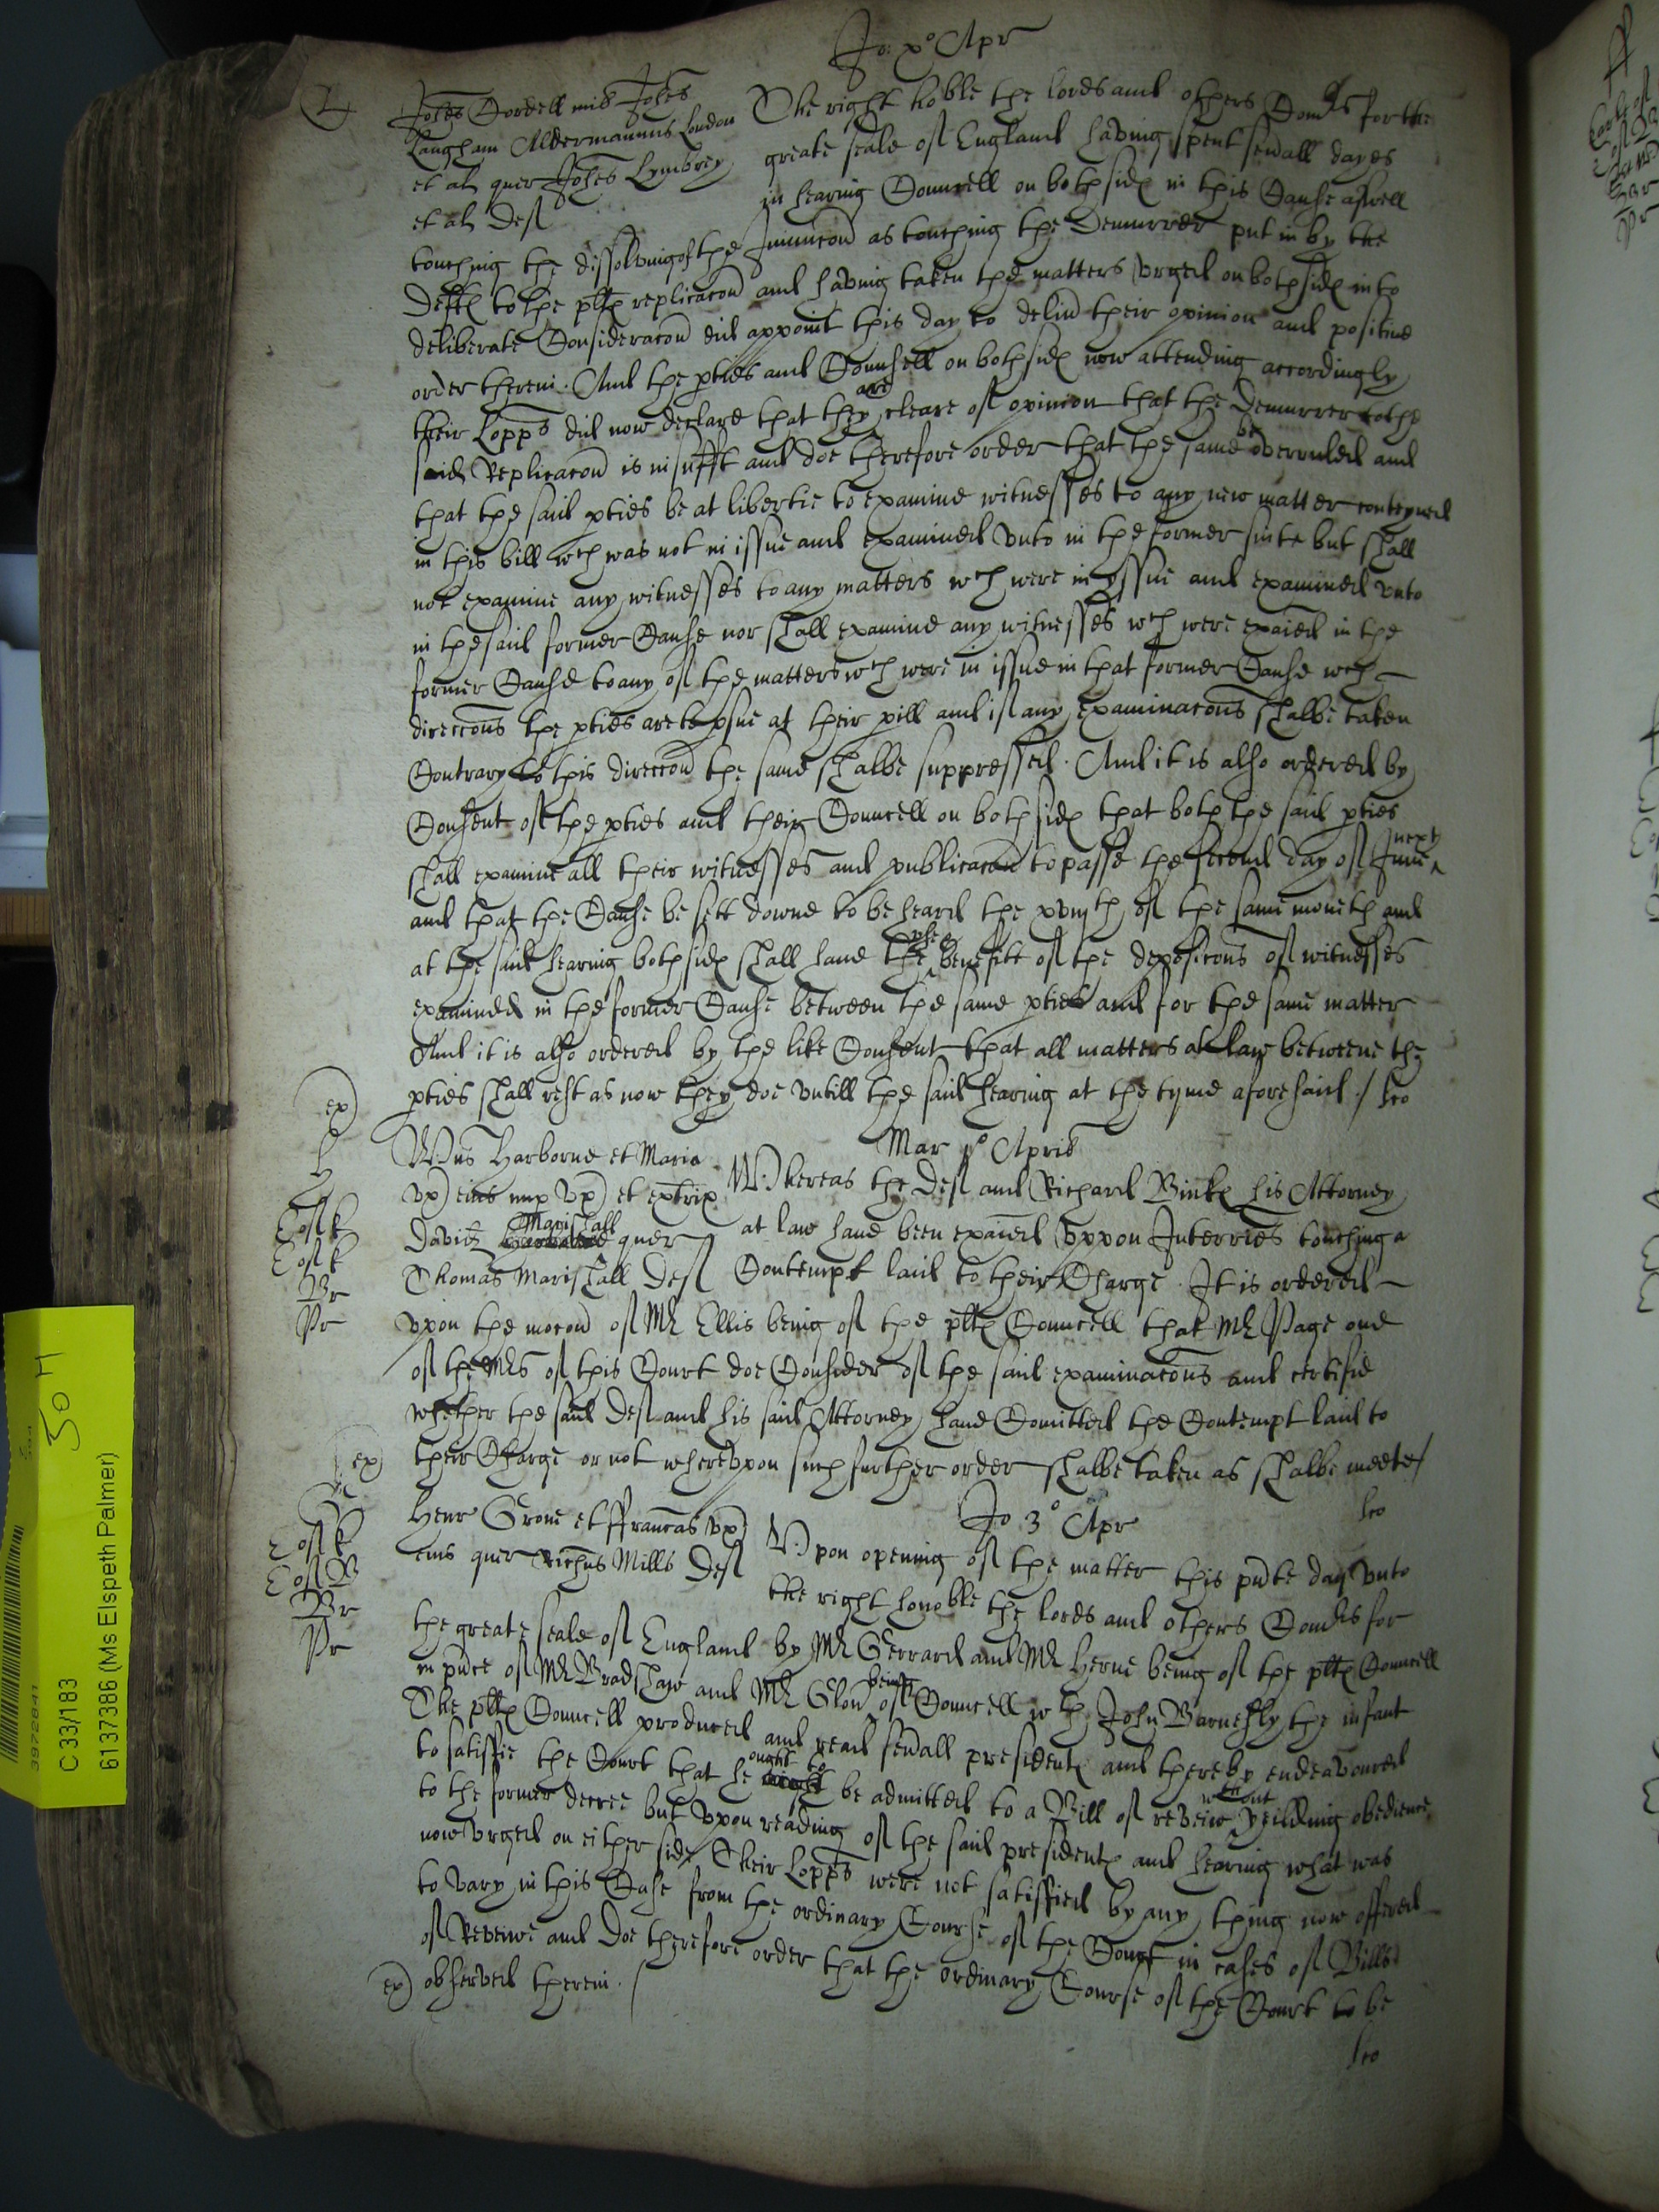 Jo: xº Apr
L
Johes Cordell mil Johes
Langham Aldermannus London
et al quer Johes Lymbrey
et al Def
The right hoble the lords and others Comrs for the
greate seale of England having spent sevall dayes
in hearing Councell on both sides in this Cause aswell
touching the dissolving of the Iniunccon as touching the Demurrer put in by the
Defts to the plts replicacon and having taken the matters vrged on both sides into
deliberate Consideracon did appoint this day to deliu their opinion and positive
order therein. And the pties and Counsell on both sides now attending accordingly
their Lopps did now declare that they are cleare of opinion that the Demurrer to the
said Replicacon is insufft and doe therefore order that the same be overruled and
that the said pties be at libertie to examine witnesses to any new matter conteyned
in this bill wch was not in issue and examined vnto in the former suite but shall
not examine any witnesses to any matters wch were in yssue and examined vnto
in the said former Cause nor shall examine any witnesses wch were exaied in the
former Cause to any of the matters wch were in issue in that former Cause wch
direccons the pties are to psue at their pill and if any examinacons shalbe taken
Contrary to this direccon the same shalbe suppressed. And it is also ordered by
Consent of the pties and their Councell on both sides that both the said pties
shall examine all their witnesses and publicacon to passe the second day of June next
and that the Cause be sett downe to be heard the xviijth of the same moneth and
at the said hearing both sides shall haue the benefitt of the deposicons of witnesses
examined in the former Cause between the same pties and for the same matter
And it is also ordered by the like Consent that all matters at law betweene the
pties shall rest as now they doe vntill the said hearing at the tyme aforesaid /
ex
H
Mar pº Apris
Wms Harborne et Maria
vx eius nup vx et extrix
David Marishall quer
Thomas Marishall Def
Whereas the Def and Richard Binks his Attorney
at law haue been exaied vppon Interries touching a
Contempt laid to their Charge. It is ordered
vpon the mocon of Mr Ellis being of the plts Councell that Mr Page one
of the Mrs of this Court doe Consider of the said examinacons and certifie
whether the said Def and his said Attorney haue Comitted the Contempt laid to
their Charge or not wherevpon such further order shalbe taken as shalbe meete /
ex
Jo 3º Apr
Henr Grove et ffrancas vx
eius quer Richus Mills Def
Vpon opening of the matter this pnte day vnto
the right honoble the lords and others Comrs for
the greate seale of England by Mr Gerrard and Mr Herne being of the plts Councell
in pnce of Mr Bradshaw and Mr Glou being of Councell wth John Barnesly the infant
The plts Councell produced and read sevall presidents and thereby endeavoured
to satisfie the Court that he ought to be admitted to a Bill of reveiw without yeilding obedience
to the former decree but vpon reading of the said presidents and hearing what was
now vrged on either side Their Lopps were not satisfied by any thing now offered
to vary in this Case from the ordinary Course of the Court in cases of Bills
of Reveiwe and doe therefore order that the ordinary Course of the Court to be
ex observed therein. /
50 H
3972841
C 33/183
6137386 (Ms Elspeth Palmer)